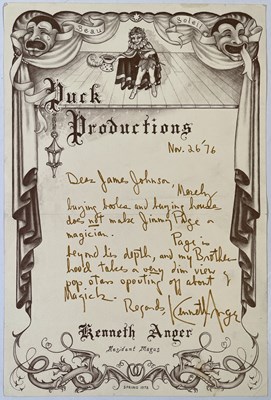 Beau Soleil
Puck
Productions
Nov. 26 76
Dear James Johnson, Merely
buying books and buying houses
does not make Jimmy Page a
magician. Page is
beyond his depth, and my Brother-
hood takes a very dim view of
pop stars spouting off about
Magick. Regards Kenneth Anger
Kenneth Anger
Resident Magus
SPRING 1973